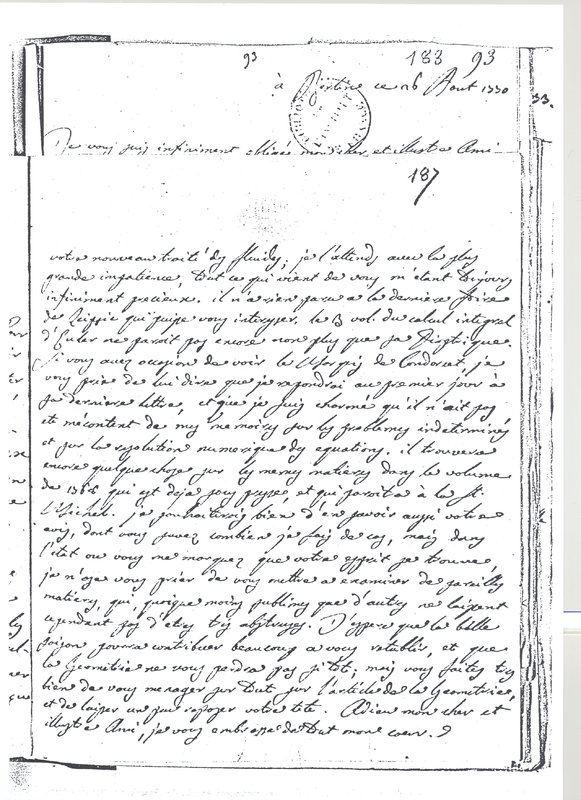 93 183 93
à Berlin ce 26 Aout 1770
33.
Je vous suis infiniment obligé, mon cher et illustre Ami
187
votre nouveau traité des fluides; je l'attends avec la plus
grande impatience, tout ce qui vient de vous m'etant toujours
infiniment precieux. il n'a rien paru a la derniere foire
de Leipsic qui puisse vous interesser. le 3 vol. du calcul integral
d'Euler ne paroit pas encore non plus que sa Dioptrique.
Si vous avez occasion de voir le Marquis de Condorcet, je
vous prie de lui dire que je repondrai au premier jour à
sa derniere lettre, et que je suis charmé qu'il n'ait pas
eté mécontent de mes memoires sur les problemes indeterminés
et sur la resolution numerique des equations. il trouvera
encore quelque chose sur les memes matieres dans le volume
de 1768 qui est deja sous presse, et qui paroitra à la St.
Michel. je souhaiterois bien d'en savoir aussi votre
avis, dont vous savez combien je fais de cas, mais dans
l'état ou vous me marquez que votre esprit se trouve,
je n'ose vous prier de vous mettre a examiner de pareilles
matieres, qui, quoique moins sublimes que d'autres ne laissent
cependant pas d'etre tres abstruses. J'espere que la belle
saison pourra contribuer beaucoup a vous retablir, et que
la Geometrie ne vous perdra pas si tôt; mais vous faites tres
bien de vous menager sur tout sur l'article de la Geometrie,
et de laisser un peu reposer votre tête. Adieu mon cher et
illustre Ami, je vous embrasse de tout mon coeur.